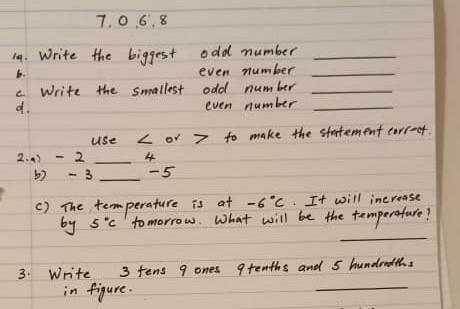 7, 0, 6, 8
1a. Write the biggest odd number ______
b. even number ______
c. Write the smallest odd number ______
d. even number ______
use < or > to make the statement correct.
2.a) - 2 ____ 4
b) - 3 ____ -5
c) The temperature is at -6°C. It will increase
by 5°C tomorrow. What will be the temperature?
______
3. Write 3 tens 9 ones 9 tenths and 5 hundredths
in figure. ______